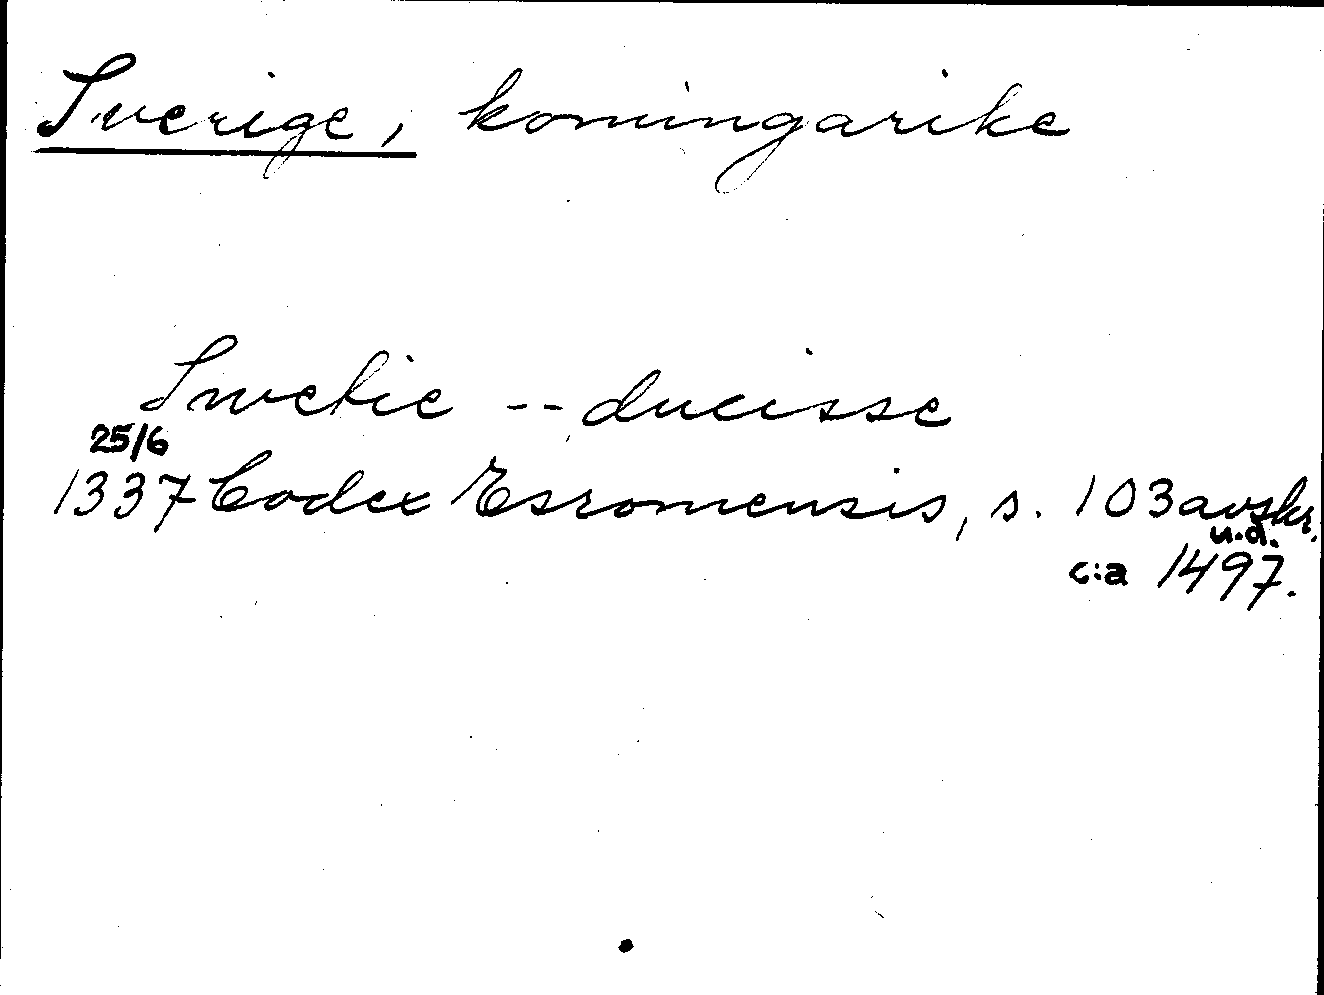 Sverige, konungarike
Swetie -- ducisse
25/6
1337 Codex Esromensis, s. 103 avskr.
u.d.
c:a 1497.